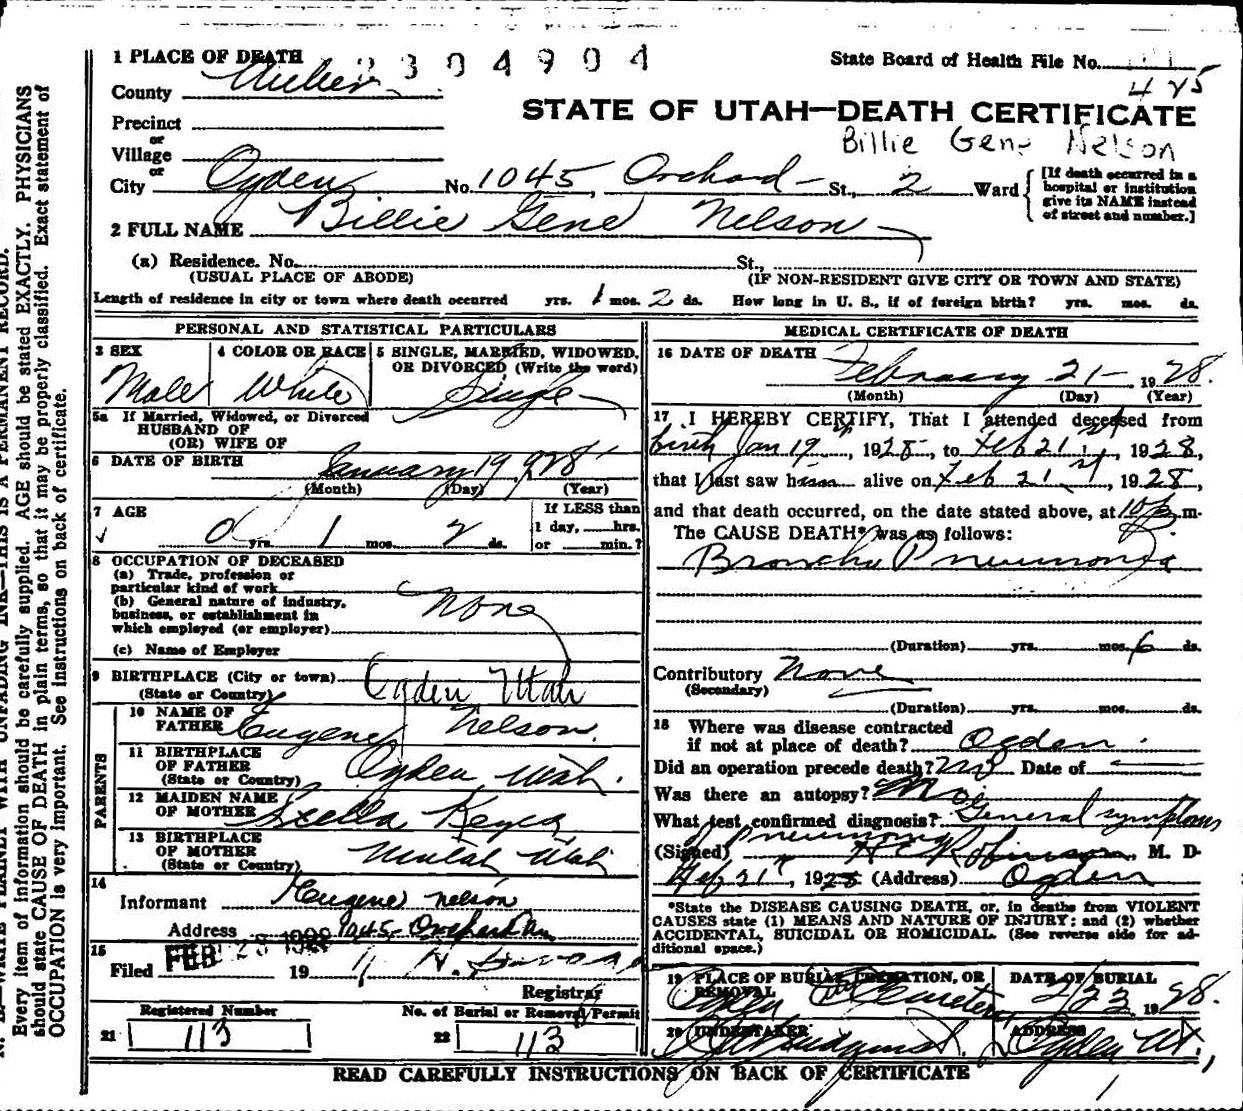 1 PLACE OF DEATH 2304904 State Board of Health File No. 425
County Weber
STATE OF UTAH—DEATH CERTIFICATE
Precinct
or
Billie Gene Nelson
Village
or
City Ogden No. 1045, Orchard St., 2 Ward
[If death occurred in a
hospital or institution
give its NAME instead
of street and number.]
2 FULL NAME Billie Gene Nelson
(a) Residence. No. St.,
(USUAL PLACE OF ABODE) (IF NON-RESIDENT GIVE CITY OR TOWN AND STATE)
Length of residence in city or town where death occurred yrs. 1 mos. 2 ds. How long in U. S., if of foreign birth? yrs. mos. ds.
PERSONAL AND STATISTICAL PARTICULARS
3 SEX 4 COLOR OR RACE 5 SINGLE, MARRIED, WIDOWED,
OR DIVORCED (Write the word)
Male White Single
5a If Married, Widowed, or Divorced
HUSBAND OF
(OR) WIFE OF
6 DATE OF BIRTH January 19 1928
(Month) (Day) (Year)
7 AGE If LESS than
0 yrs. 1 mos. 2 ds. 1 day, hrs.
or min.?
8 OCCUPATION OF DECEASED
(a) Trade, profession or
particular kind of work
(b) General nature of industry, None
business, or establishment in
which employed (or employer)
(c) Name of Employer
9 BIRTHPLACE (City or town) Ogden Utah
(State or Country)
PARENTS
10 NAME OF
FATHER Eugene Nelson.
11 BIRTHPLACE
OF FATHER Ogden Utah.
(State or Country)
12 MAIDEN NAME
OF MOTHER Stella Keyes
13 BIRTHPLACE
OF MOTHER Utah
(State or Country)
14
Informant Eugene Nelson
Address 1045 Orchard Av.
15
Filed FEB 23 1928 19
Registrar
Registered Number No. of Burial or Removal Permit
21 113 22 113
MEDICAL CERTIFICATE OF DEATH
16 DATE OF DEATH February 21 1928.
(Month) (Day) (Year)
17 I HEREBY CERTIFY, That I attended deceased from
birth Jan 19th, 1928, to Feb 21st, 1928,
that I last saw him alive on Feb 21st, 1928,
and that death occurred, on the date stated above, at 10 P. m.
The CAUSE DEATH* was as follows:
Broncho Pneumonia
(Duration) yrs. mos. 6 ds.
Contributory None
(Secondary)
(Duration) yrs. mos. ds.
18 Where was disease contracted
if not at place of death? Ogden.
Did an operation precede death? No Date of
Was there an autopsy? No
What test confirmed diagnosis? General symptoms
pneumonia
(Signed) Robinson, M. D.
Feb 21st, 1928 (Address) Ogden
*State the DISEASE CAUSING DEATH, or, in deaths from VIOLENT
CAUSES state (1) MEANS AND NATURE OF INJURY; and (2) whether
ACCIDENTAL, SUICIDAL OR HOMICIDAL. (See reverse side for ad-
ditional space.)
19 PLACE OF BURIAL, CREMATION, OR DATE OF BURIAL
REMOVAL
Ogden City Cemetery 2/23 1928.
20 UNDERTAKER ADDRESS
Ogden Ut.,
READ CAREFULLY INSTRUCTIONS ON BACK OF CERTIFICATE
N. B.—WRITE PLAINLY WITH UNFADING INK—THIS IS A PERMANENT RECORD.
Every item of information should be carefully supplied. AGE should be stated EXACTLY. PHYSICIANS
should state CAUSE OF DEATH in plain terms, so that it may be properly classified. Exact statement of
OCCUPATION is very important. See instructions on back of certificate.